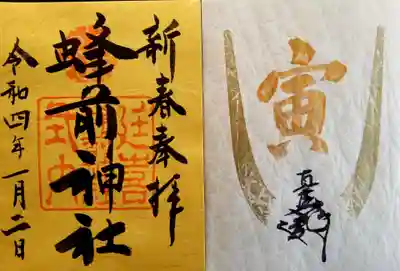 新春奉拝
蜂前神社
令和四年一月二日
延喜
式内
寅